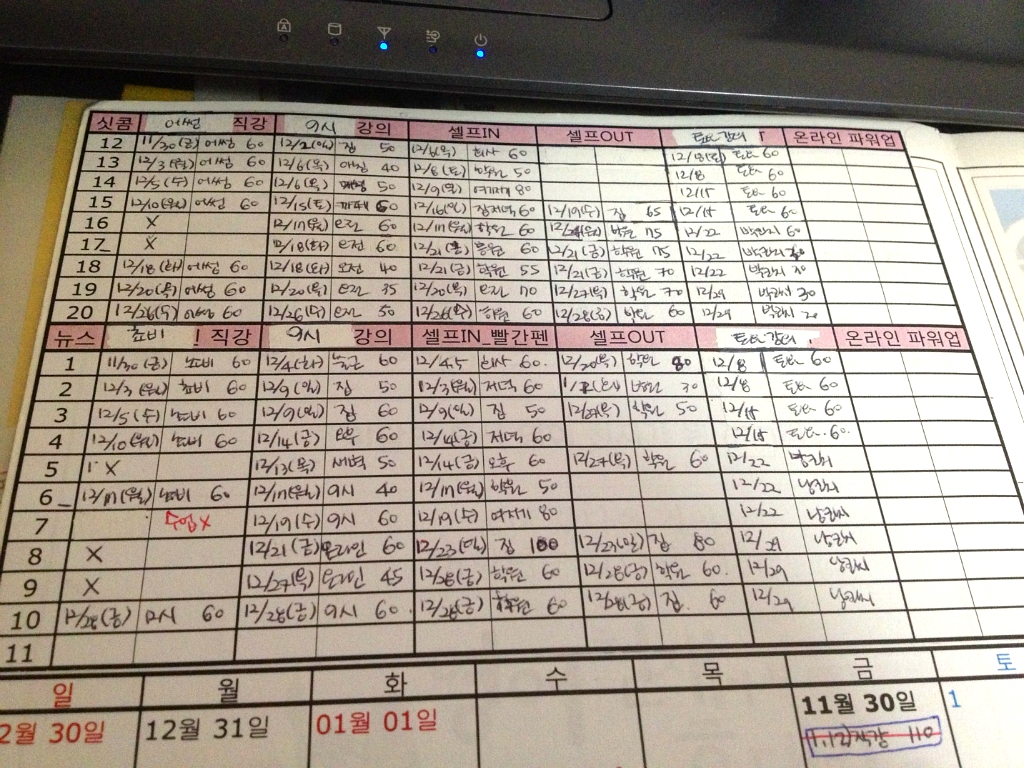 싯콤 어썸 직강 9시 강의 셀프IN 셀프OUT 온라인 파워업
12 11/30(금) 어썸 60 12/2(일) 집 50 12/6(목) 회사 60 60
13 12/3(월) 어썸 60 12/6(목) 아침 40 12/8(토) 학원 50 12/8 토타 60
14 12/5(수) 어썸 60 12/6(목) 50 12/9(일) 여기저기 80 12/15 토타 60
15 12/10(월) 어썸 60 12/15(토) 카페 60 12/16(일) 집저녁 60 12/19(수) 집 65 12/15 토타 60
16 X 12/17(월) 오전 60 12/17(월) 학원 60 학원 75 12/22 60
17 X 12/18(화) 오전 60 12/21(금) 학원 60 12/21(금) 학원 75 12/22
18 12/18(화) 어썸 60 12/18(화) 오전 40 12/21(금) 학원 55 12/21(금) 학원 70 12/22
19 12/20(목) 어썸 60 12/20(목) 오전 35 12/20(목) 오전 70 12/27(목) 학원 70 12/29 30
20 12/26(수) 어썸 60 12/26(수) 오전 50 12/26(수) 학원 60 12/28(금) 학원 60 12/29
뉴스 쵸비 ! 직강 9시 강의 셀프IN_빨간펜 셀프OUT 온라인 파워업
1 11/30(금) 쵸비 60 12/4(화) 출근 60 12/4.5 회사 60 12/20(목) 학원 80 12/8 토타 60
2 12/3(월) 쵸비 60 12/9(일) 집 50 12/3(월) 저녁 60 30 12/8 토타 60
3 12/5(수) 쵸비 60 12/9(일) 집 60 12/9(일) 집 50 12/27(목) 학원 50 12/15 토타 60
4 12/10(월) 쵸비 60 12/14(금) 오후 60 12/14(금) 저녁 60 12/15 토타 60
5 X 12/13(목) 새벽 50 12/14(금) 오후 60 12/27(목) 학원 60 12/22
6 12/17(월) 쵸비 60 12/17(월) 9시 40 12/17(월) 학원 50 12/22
7 수업X 12/19(수) 9시 60 12/19(수) 여기저기 80 12/22
8 X 12/21(금) 온라인 60 12/23(일) 집 100 12/23(일) 집 80 12/29
9 X 12/27(목) 온라인 45 12/28(금) 학원 60 12/28(금) 학원 60 12/29
10 12/28(금) 12시 60 12/28(금) 9시 60 12/28(금) 학원 60 12/28(금) 집 60 12/29
11
일 월 화 수 목 금 토
2월 30일 12월 31일 01월 01일 11월 30일 1
1.12)직강 110